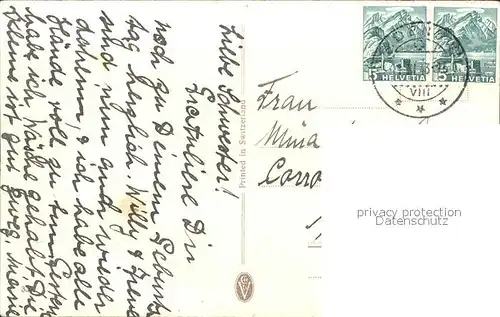 Liebe Schwester!
Gratuliere Dir
noch zu Deinem Geburts
tag herzlich. Willy & Irene
sind nun auch wieder
daheim, & ich habe alle
Hände voll zu tun. Gestern
habe ich Wäsche gehabt. Die
Kleine ist ganz
Printed in Switzerland
Frau
Mina
HELVETIA
5
HELVETIA
5
VIII
privacy protection
Datenschutz